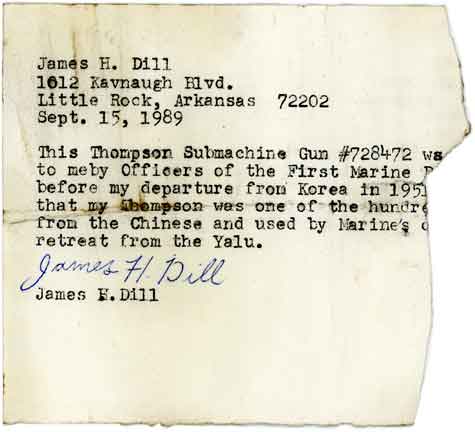 James H. Dill
1612 Kavnaugh Blvd.
Little Rock, Arkansas 72202
Sept. 15, 1989
This Thompson Submachine Gun #728472 ws
to meby Officers of the First Marine
before my departure from Korea in 1951
that my Thompson was one of the hundre
from the Chinese and used by Marine's
retreat from the Yalu.
James H. Dill
James H.Dill